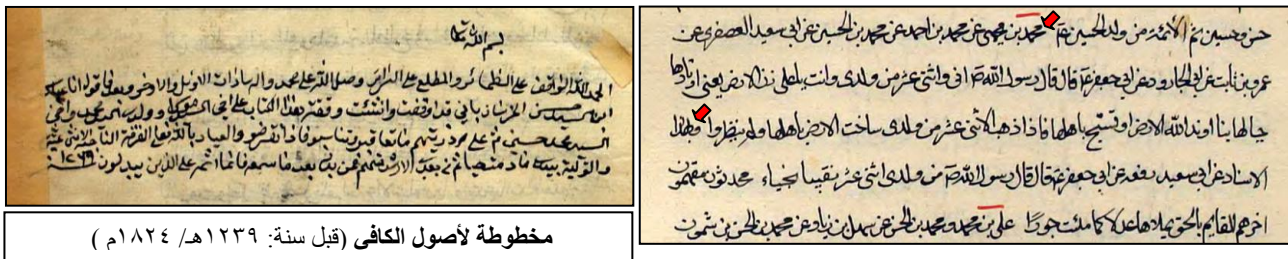 بسم الله تعا
الحمد لله الواقف على الظمائر والمطلع على السرائر وصلى الله على محمد واله سادات الاوايل والاواخر وبعد
قد وقفت هذا الكتاب على اخي
السيد محمد حسين ثم على
والتولية بيدنا مادمت حيا ثم بعد الارشد منهم فمن بدله بعد ما سمعه فانما اثمه على الذين يبدلونه سنة ١٢٣٩
مخطوطة لأصول الكافي (قبل سنة: ١٢٣٩هـ/ ١٨٢٤م )
حسن وحسين ثم الأئمة من ولد الحسين عم محمد بن يحيى عن محمد بن احمد عن محمد بن الحسين عن ابي سعيد العصفري عن
عمرو بن ثابت عن ابي الجارود عن ابي جعفر عم قال قال رسول الله ص اني واثنى عشر من ولدي وانت يا علي زر الارض يعني اوتادها
جبالها بنا اوتد الله الارض ان تسيخ باهلها فاذا ذهب الاثنى عشر من ولدي ساخت الارض باهلها ولم ينظروا وبهذا
الاسناد عن ابي سعيد رفعه عن ابي جعفر عم قال قال رسول الله ص من ولدي اثنى عشر نقيبا نجباء محدثون مفهمون
اخرهم القايم بالحق يملاها عدلا كما ملئت جورا علي بن محمد ومحمد بن الحسن عن سهل بن زياد عن محمد بن الحسن بن شمون